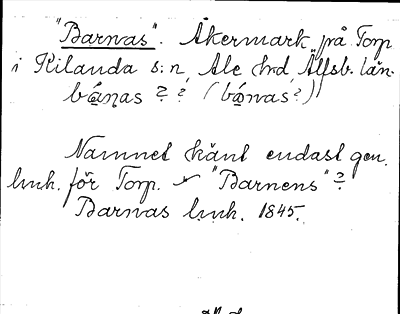 "Barnas". Åkermark på Torp
i Kilanda s:n, Ale hrd, Älfsb. län.
bánas ? ? (bánas?)
Namnet känt endast gen.
lmk. för Torp. "Barnens" ?
Barnas lmk. 1845.